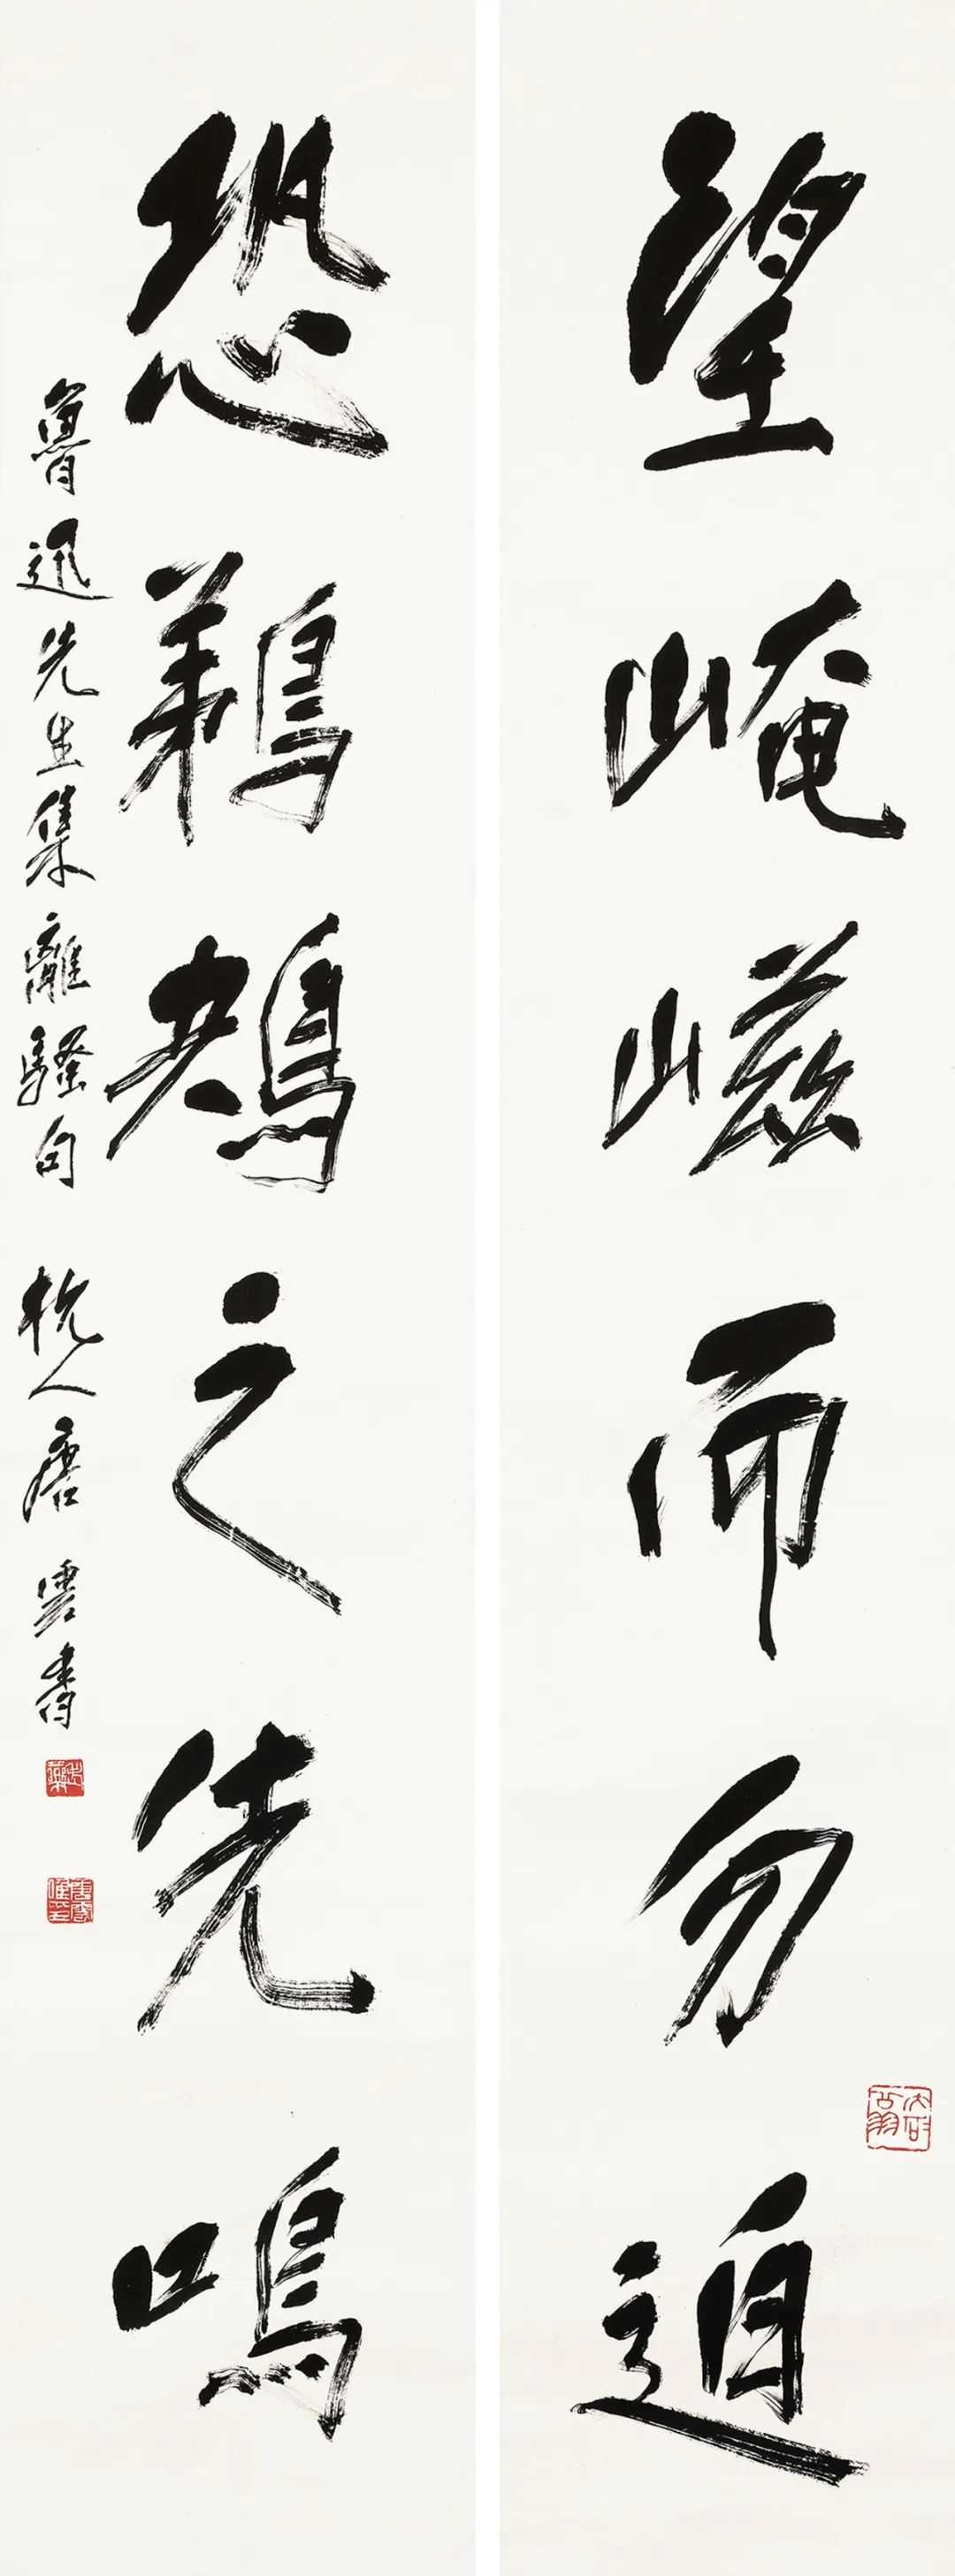 望崦嵫而勿迫
恐鵜鴂之先鳴
魯迅先生集離騷句 杭人唐雲書
大石翁